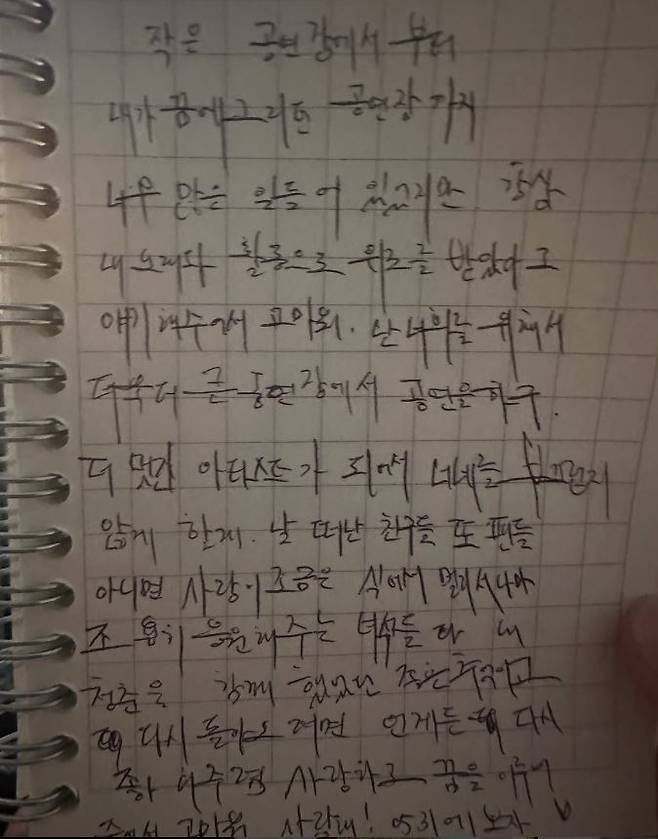 작은 공연장에서 부터
내가 꿈에그리던 공연장 까지
너무 많은 일들이 있었지만 항상
내 노래와 활동으로 위로를 받았다고
얘기해줘서 고마워. 난 너희를 위해서
더욱더 큰 공연장에서 공연을하구.
더 멋진 아티스트가 되어서 너네를 부끄럽지
않게 할게. 날 떠난 친구들 또 팬들
아니면 사랑이 조금은 식어서 멀리서나마
조용히 응원해주는 녀석들 다 내
청춘을 함께 했었던 좋은추억이고
다시 돌아오려면 언제든 다시
좋아해주렴 사랑하고 꿈을 이뤄
줘서 고마워 사랑해! 0531에보자